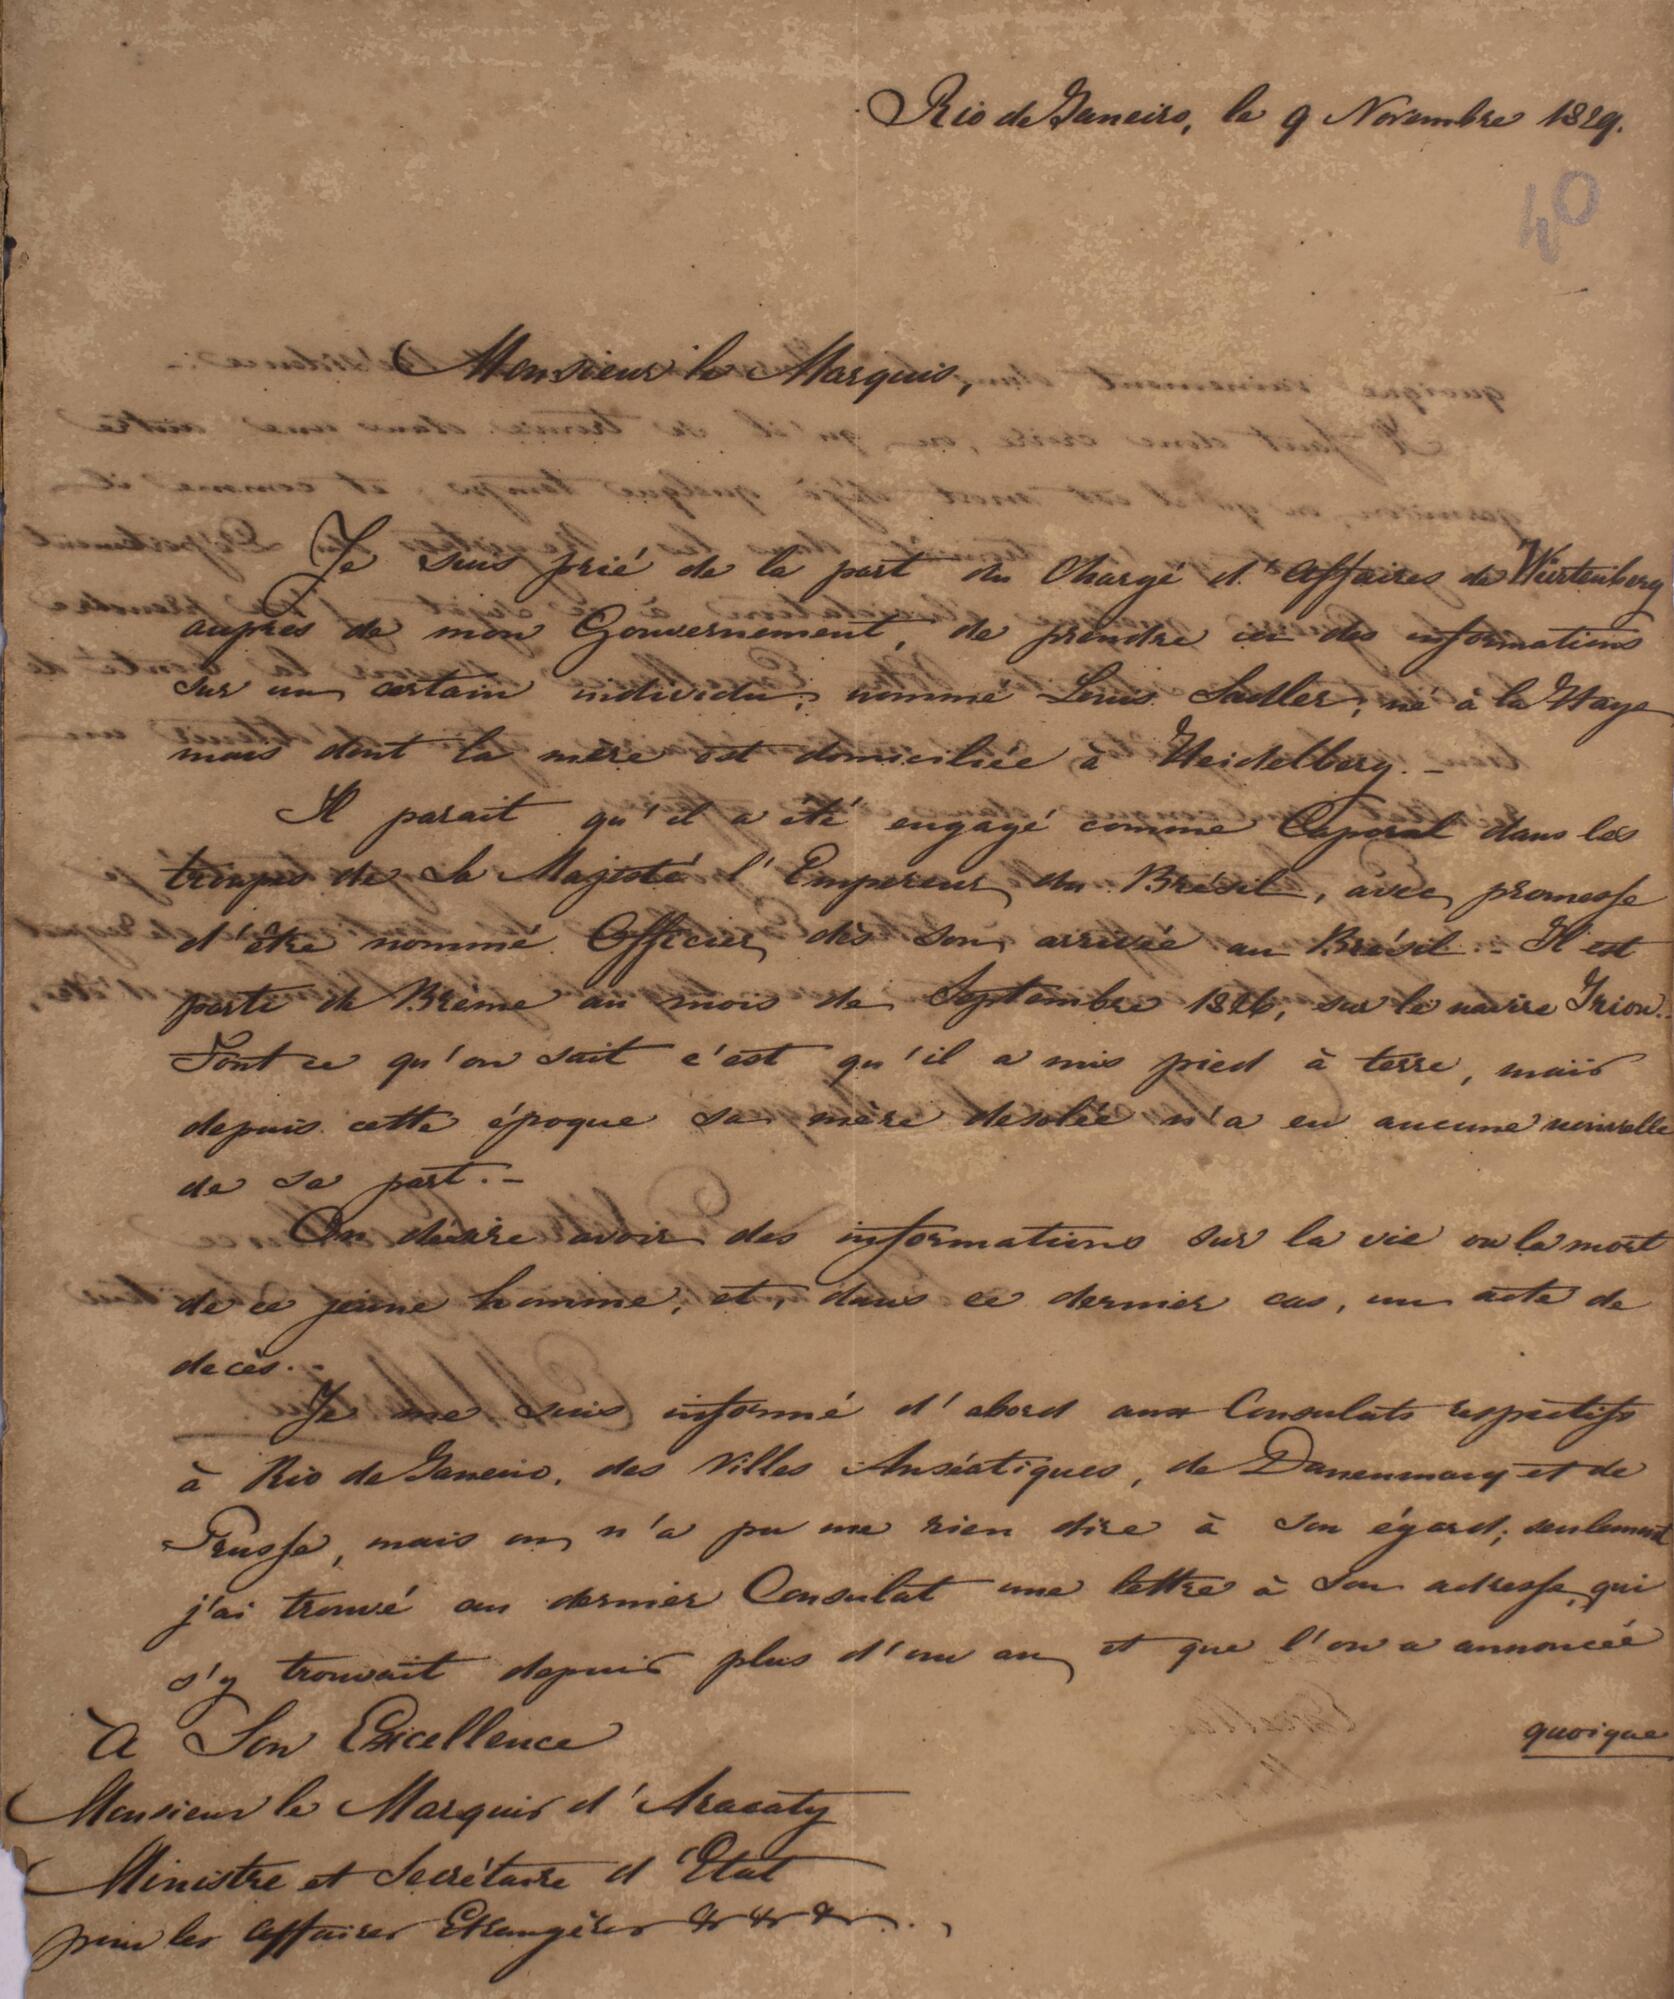 Rio de Janeiro, le 9 Novembre 1829.
40
Monsieur le Marquis,
Je suis prié de la part du Chargé d'Affaires de Würtenberg
auprès de mon Gouvernement, de prendre ici des informations
sur un certain individu, nommé Louis Sadler, né à la Haye
mais dont la mère est domiciliée à Heidelberg. –
Il parait qu'il a été engagé comme Caporal dans les
troupes de Sa Majesté l'Empereur du Brésil, avec promesse
d'être nommé Officier dès son arrivée au Brésil. – Il est
parti de Brème au mois de Septembre 1826, sur le navire
Tout ce qu'on sait c'est qu'il a mis pied à terre, mais
depuis cette époque sa mère desolée n'a eu aucune nouvelle
de sa part. –
On désire avoir des informations sur la vie ou la mort
de ce jeune homme, et, dans ce dernier cas, un acte de
decès. –
Je me suis informé d'abord aux Consulats respectifs
à Rio de Janeiro, des Villes Anséatiques, de Danenmarq et de
Prusse, mais on n'a pu me rien dire à son égard; seulement
j'ai trouvé au dernier Consulat une lettre à son adresse, qui
s'y trouvait depuis plus d'un an et que l'on a annoncée
quoique
à Son Excellence
Monsieur le Marquis d'Aracaty
Ministre et Secrétaire d'Etat
pour les Affaires Etrangères & & &.